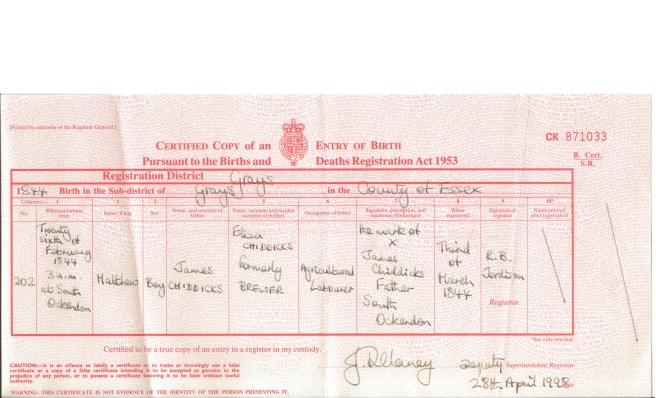 [Printed by authority of the Registrar General.]
CK 871033
CERTIFIED COPY of an ENTRY OF BIRTH
Pursuant to the Births and Deaths Registration Act 1953
B. Cert.
S.R.
Registration District Grays
1844 Birth in the Sub-district of Grays in the County of Essex
Columns:— 1 2 3 4 5 6 7 8 9 10*
No. When and where born Name, if any Sex Name, and surname of father Name, surname and maiden surname of mother Occupation of father Signature, description, and residence of informant When registered Signature of registrar Name entered after registration
202
Twenty
sixth of
February
1844
3 a.m.
at South
Ockendon
Matthew
Boy
James
CHIDDICKS
Eliza
CHIDDICKS
formerly
BREWER
Agricultural
Labourer
The mark of
X
James
Chiddicks
Father
South
Ockendon
Third
of
March
1844
R.B.
Jordison
Registrar.
*See note overleaf.
Certified to be a true copy of an entry in a register in my custody.
deputy Superintendent Registrar
28th April 1998
CAUTION:—It is an offence to falsify a certificate or to make or knowingly use a false
certificate or a copy of a false certificate intending it to be accepted as genuine to the
prejudice of any person, or to possess a certificate knowing it to be false without lawful
authority.
WARNING: THIS CERTIFICATE IS NOT EVIDENCE OF THE IDENTITY OF THE PERSON PRESENTING IT.